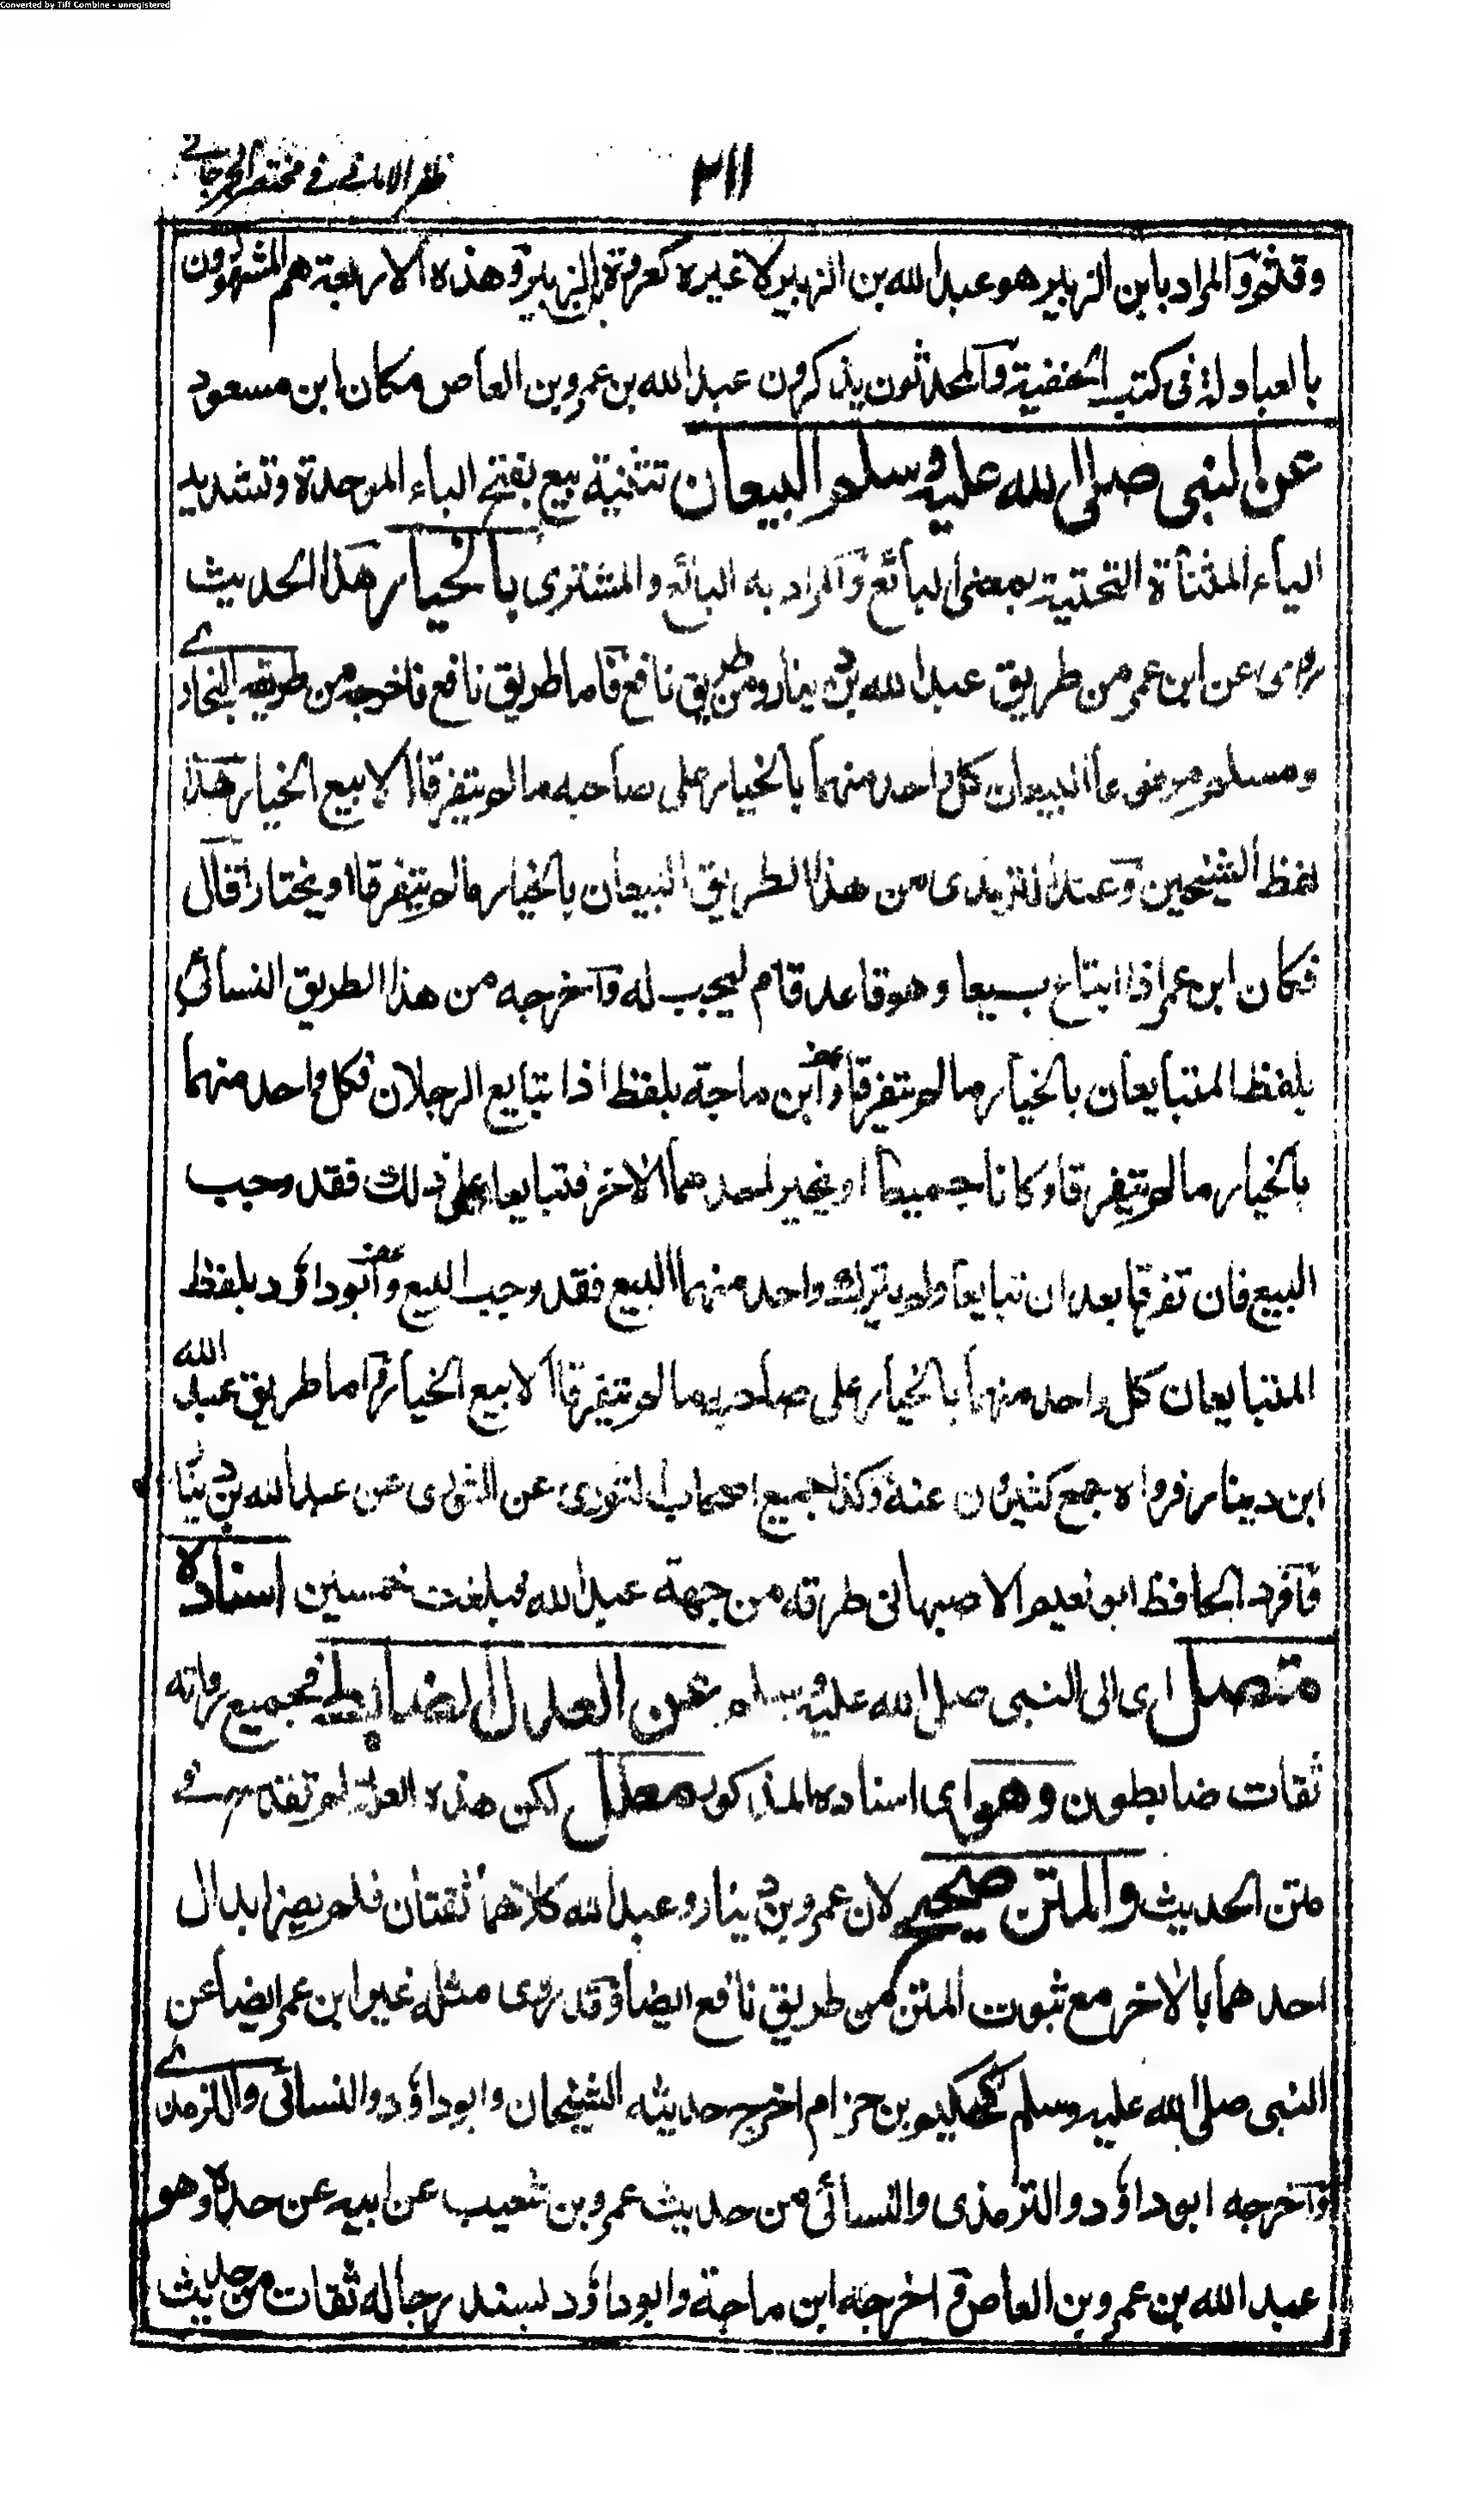 Converted by Tiff Combine - unregistered
٢١١
ظفر الامانى فے مختصر الجرجانے
وقثم والمراد بابن الزبير هو عبد الله بن الزبير لا غيره كعروة بن الزبير وهذه الاربعة هم المشهورون
بالعبادلة فى كتب الحنفية والمحدثون يذكرون عبد الله بن عمرو بن العاص مكان ابن مسعود
عن النبى صلى الله عليه وسلم البيعان تثنية بيع بفتح الباء الموحدة وتشديد
الياء المثناة التحتية بمعنى البائع والمراد به البائع والمشترى بالخيار هذا الحديث
روى عن ابن عمر من طريق عبد الله بن دينار ومن طريق نافع فاما طريق نافع فاخرجه من طريقه البخارے
ومسلم مرفوعا البيعان كل واحد منهما بالخيار على صاحبه ما لم يتفرقا الا بيع الخيار هذا
لفظ الشيخين وعند الترمذى من هذا الطريق البيعان بالخيار ما لم يتفرقا او يختارا قال
فكان ابن عمر اذا ابتاع بيعا وهو قاعد قام ليجب له واخرجه من هذا الطريق النسائى
بلفظ المتبايعان بالخيار ما لم يتفرقا وابن ماجة بلفظ اذا تبايع الرجلان فكل واحد منهما
بالخيار ما لم يتفرقا وكانا جميعا او يخير احدهما الاخر فتبايعا على ذلك فقد وجب
البيع فان تفرقا بعد ان تبايعا ولم يترك واحد منهما البيع فقد وجب البيع وابو داؤد بلفظ
المتبايعان كل واحد منهما بالخيار على صاحبه ما لم يتفرقا الا بيع الخيار واما طريق عبد الله
ابن دينار فرواه جمع كثيرون عنه وكذا جميع اصحاب الثورى عن الثورى عن عبد الله بن دينا
وافرد الحافظ ابو نعيم الاصبهانى طرقه من جهة عبد الله فبلغت خمسين اسناده
متصل اى الى النبى صلى الله عليه وسلم عن العدل الضابط فجميع رواته
ثقات ضابطون وهو اى اسناده المذكور معلل لكن هذه العلة لم تقدح فے
متن الحديث والمتن صحيح لان عمرو بن دينار وعبد الله كلاهما ثقتان فلم يضر ابدال
احدهما بالاخر مع ثبوت المتن من طريق نافع ايضا وقد روى مثله غير ابن عمر ايضا عن
النبى صلى الله عليه وسلم كحكيم بن حزام اخرج حديثه الشيخان وابو داؤد والنسائى والترمذے
واخرجه ابو داؤد والترمذى والنسائى من حديث عمرو بن شعيب عن ابيه عن جده وهو
عبد الله بن عمرو بن العاص واخرجه ابن ماجة وابو داؤد بسند رجاله ثقات من حديث